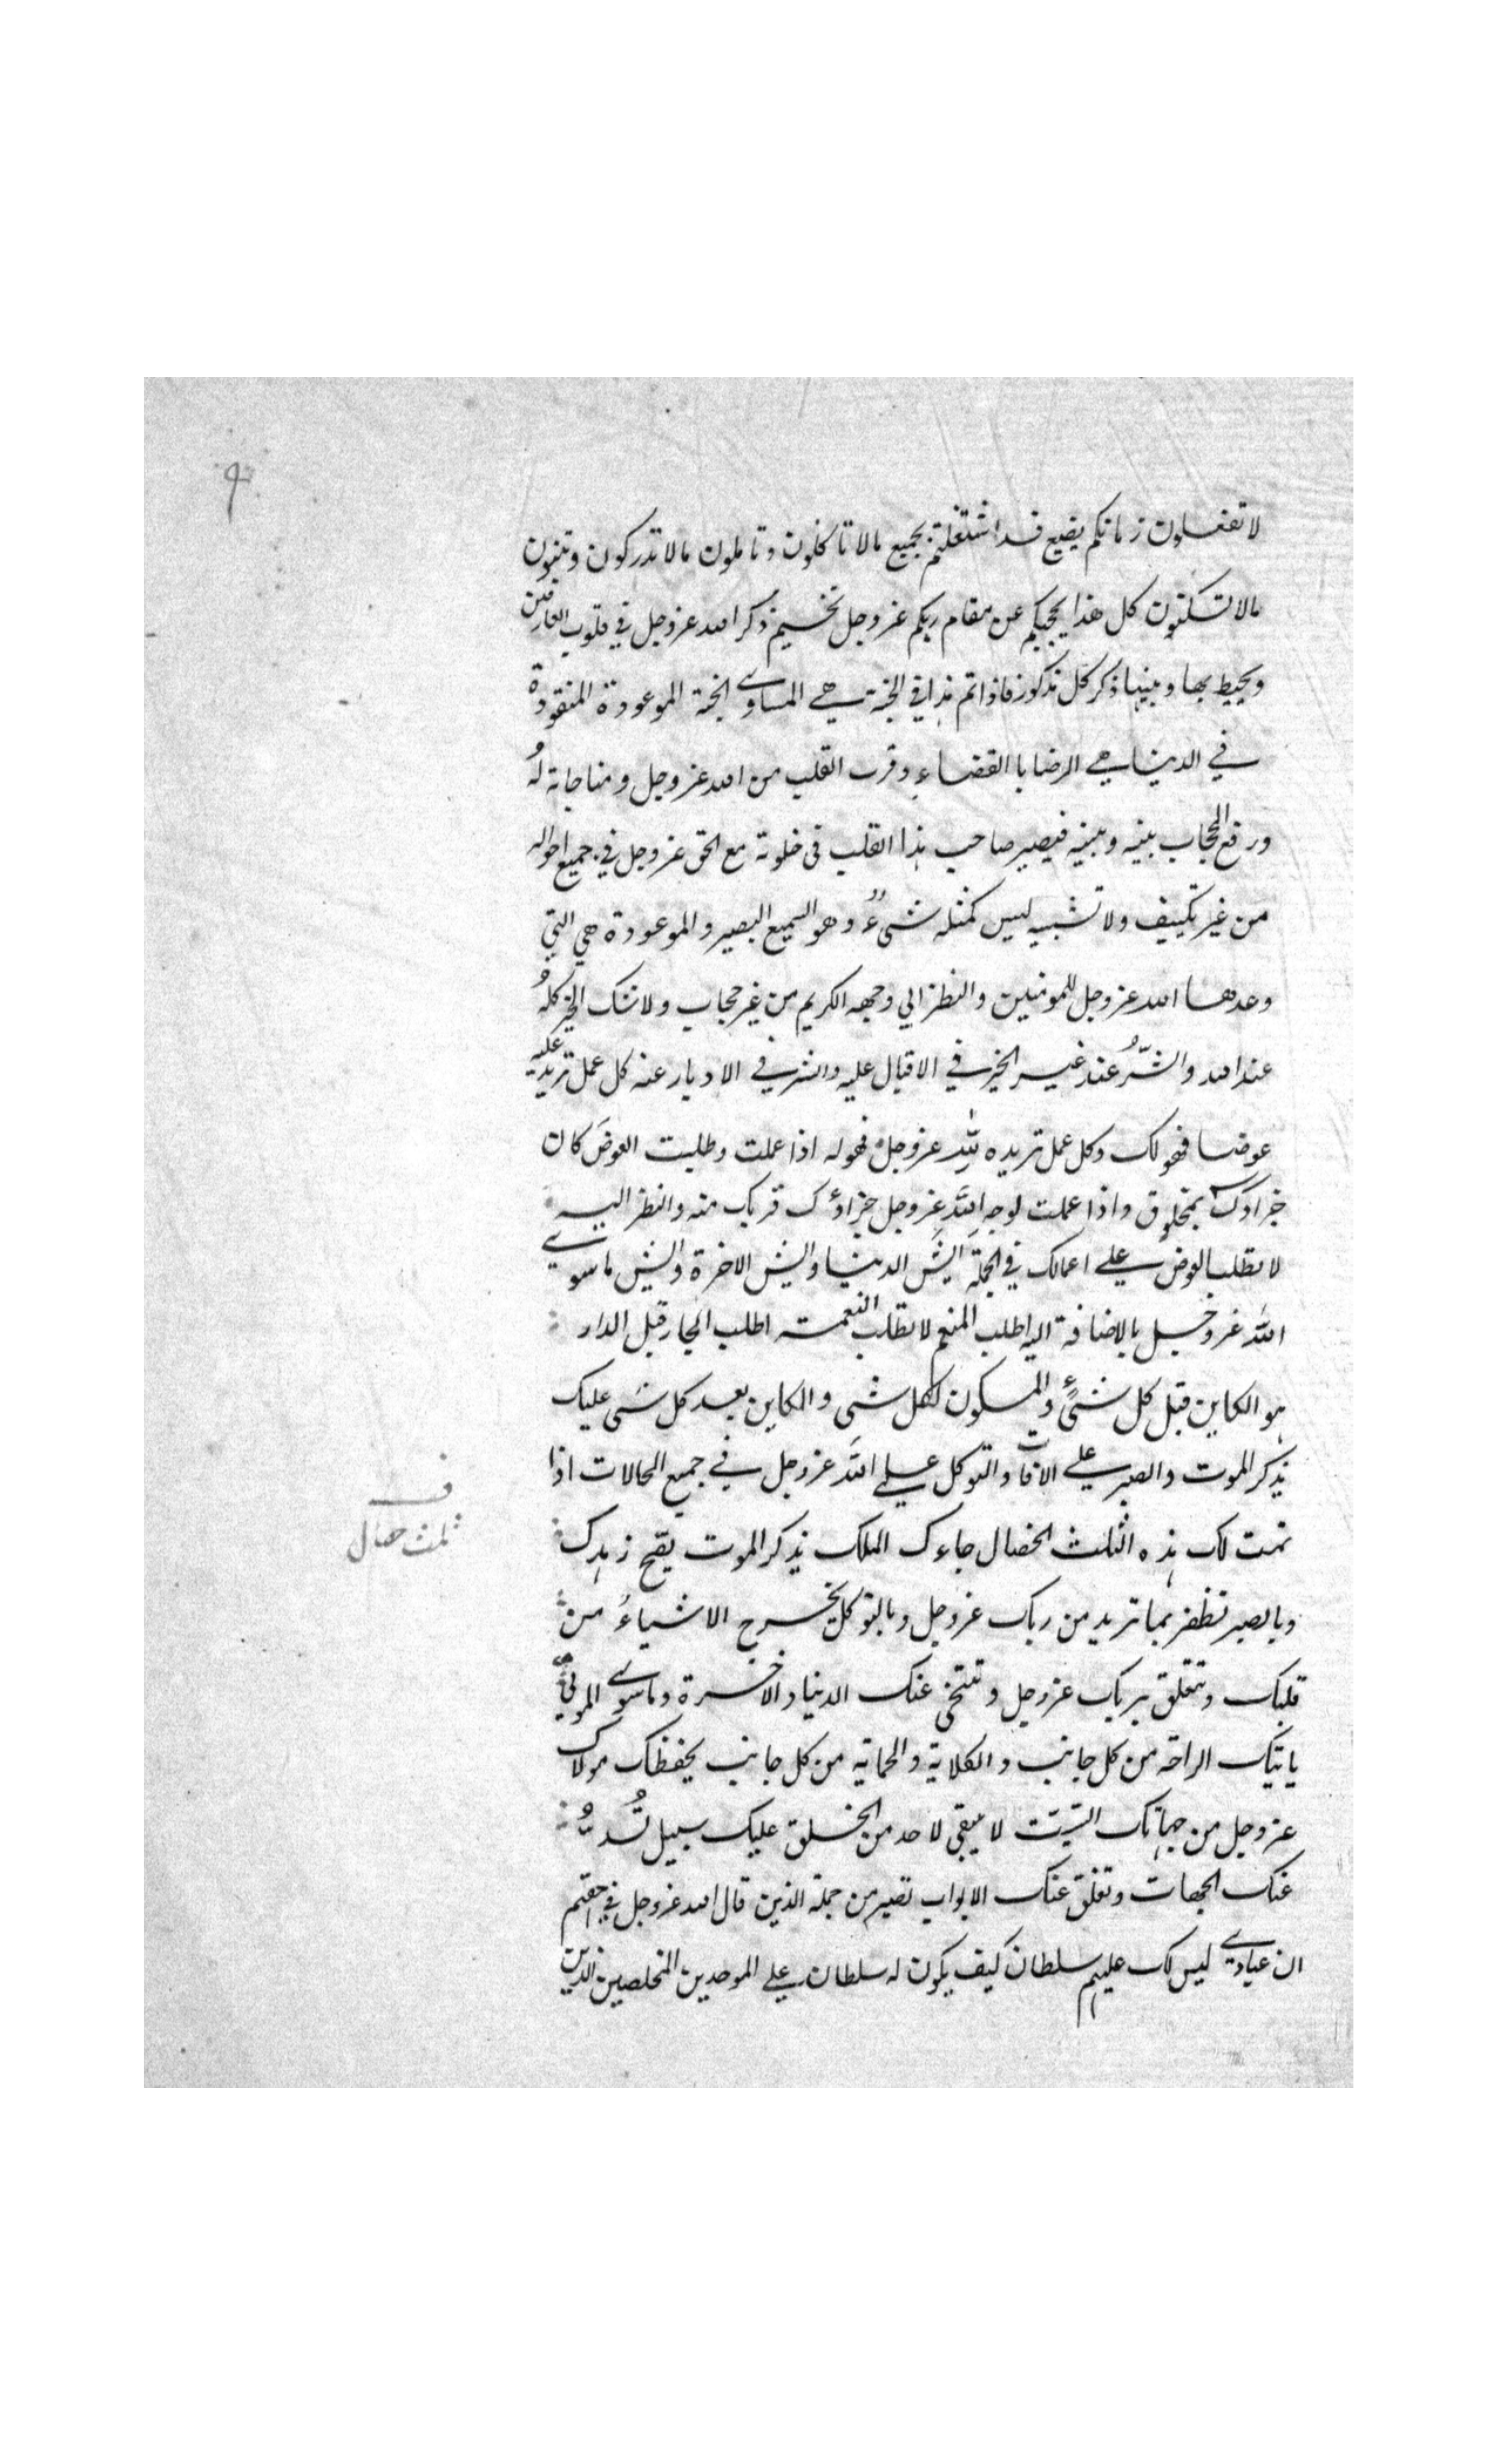 ٩
لا تفعلون زمانكم يضيع قد اشتغلتم بجميع مالا تاكلون وتاملون مالا تدركون وتبنون
مالا تسكنون كل هذا يحجبكم عن مقام ربكم عزوجل تخسيم ذكر الله عزوجل في قلوب العارفين
ويحيط بها وينسيها ذكر كل مذكور فاذا تم هذا في الجنة هي الماوى الجنة الموعودة المنقودة
في الدنيا هي الرضا با القضاء وقرب القلب من الله عزوجل ومناجاته لهُ
ورفع الحجاب بينه وبينه فيصير صاحب هذا القلب في خلوته مع الحق عزوجل في جميع احواله
من غير تكييف ولا تشبيه ليس كمثله شىءٌ وهو السميع البصير والموعودة هي التي
وعدها الله عزوجل للمومنين والنظر الي وجهه الكريم من غير حجاب ولا شك الخير كلهُ
عند الله والشّرُ عند غيره الخير في الاقبال عليه والشر في الادبار عنه كل عمل تريد عليه
عوضا فهو لك وكل عمل تريده لله عزوجل فهو له اذا عملت وطلبت العوضَ كان
جزاوك بمخلوق واذا عملت لوجه الله عزوجل جزاؤك قربك منه والنظر اليه
لا تطلب العوض على اعمالك في الجملة ايش الدنيا وايش الاخرة وايش ماسوى
الله عزوجل بالاضافة اليه اطلب المنعم لا تطلب النعمة اطلب الجار قبل الدار
هو الكاين قبل كل شىءٍ والمكون لكل شى والكاين بعد كل شى عليك
بذكر الموت والصبر على الافات والتوكل على الله عزوجل في جميع الحالات اذا
تمت لك هذه الثلث الخصال جاءك الملك بذكر الموت يصح زهدك
وبالصبر تظفر بما تريد من ربك عزوجل وبالتوكل يخرج الاشياءُ من
قلبك وتتعلق بربك عزوجل وتتنحى عنك الدنيا والاخرة وماسوى المولى
ياتيك الراحة من كل جانب والكلاية والحماية من كل جانب يحفظك مولاك
عزوجل من جهاتك الستت لا يبقى لاحد من الخلق عليك سبيل تُسدُّ
عنك الجهات وتغلق عنك الابواب تصير من جملة الذين قال الله عزوجل في حقهم
ان عبادى ليس لك عليهم سلطان كيف يكون له سلطان على الموحدين المخلصين الذين
ثلث خصال